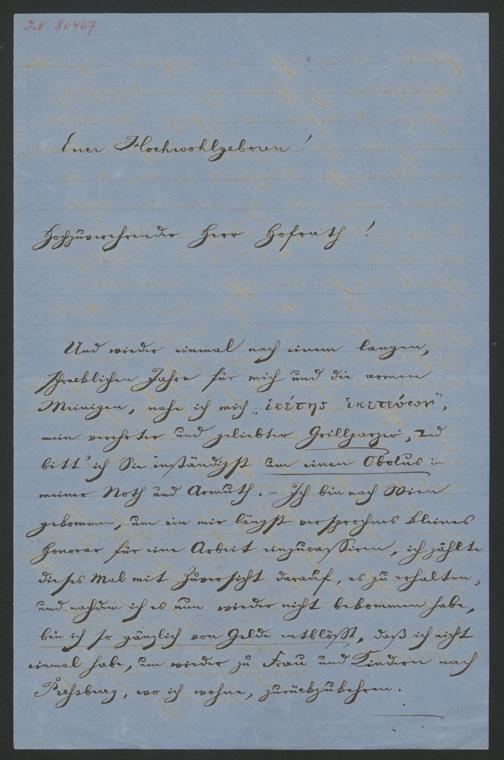 I.N. 80467
Euer Hochwohlgeboren!
Hochzuverehrender Herr Hofrath!
Und wieder einmal nach einem langen,
schrecklichen Jahre für mich und die armen
Meinigen, nahe ich mich „ἱκέτης ἱκετεύων",
mein verehrter und geliebter Grillparzer, und
bitt' ich Sie inständigst um einen Obolus in
meiner Noth und Armuth. – Ich bin nach Wien
gekommen, um ein mir längst versprochnes kleines
Honorar für eine Arbeit einzucassiren, ich zählte
dieses Mal mit Zuversicht darauf, es zu erhalten,
und nachdem ich es nun wieder nicht bekommen habe,
bin ich so gänzlich von Gelde entblößt, daß ich nicht
einmal habe, um wieder zu Frau und Kindern nach
Preßburg, wo ich wohne, zurückzukehren.